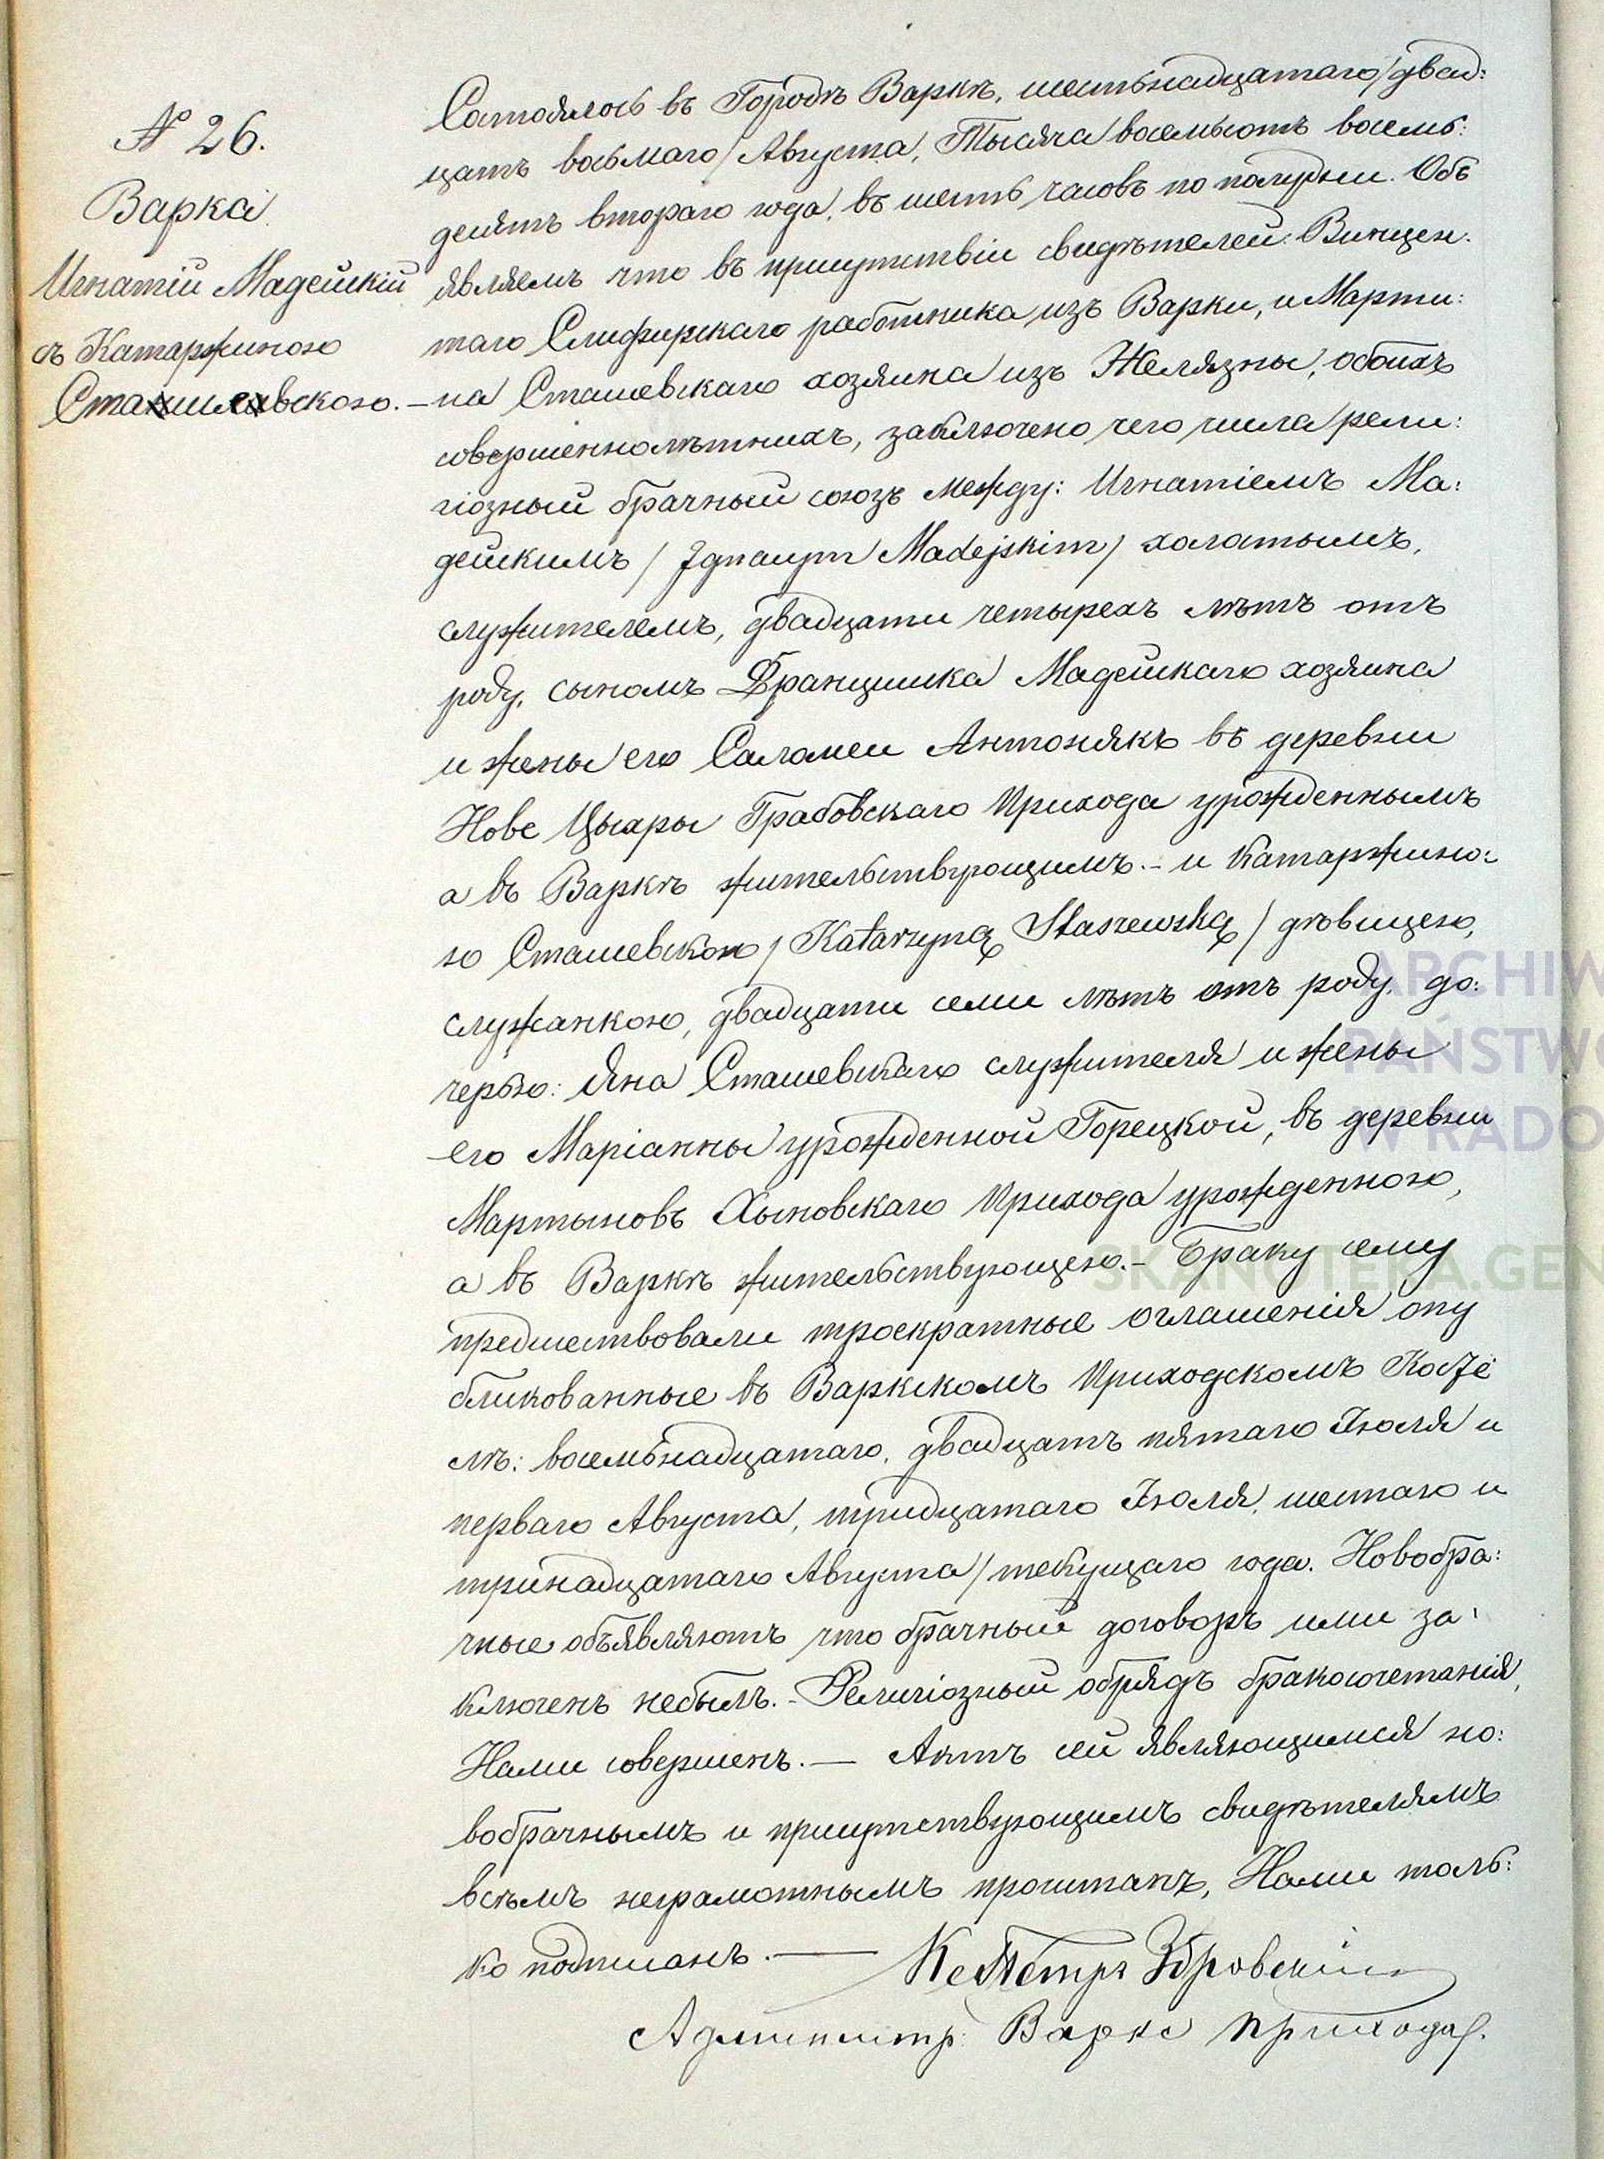 № 26.
Варка
Игнатій Мадейскій
съ Катаржиною
Сташевскою.
Состоялось въ Городѣ Варкѣ, шестьнадцатаго/двад:
цать восьмаго/Августа, Тысяча восемьсотъ восемь:
десятъ втораго года, въ шесть часовъ по полудни. Объ
являемъ что въ присутствіи свидѣтелей: Винцен.
таго работника изъ Варки, и Марти:
на Сташевскаго хозяина изъ Желязны, обоихъ
совершеннолѣтнихъ, заключено сего числа рели:
гіозный брачный союзъ между: Игнатіемъ Ма:
дейскимъ / Ignacym Madejskim / холатымъ,
служителемъ, двадцати четырехъ лѣтъ отъ
роду, сыномъ Францишка Мадейскаго хозяина
и жены его Саломеи Антонякъ въ деревни
Нове Цыхры Грабовскаго Прихода урожденнымъ
а въ Варкѣ жительствующимъ.- и Катаржино:
ю Сташевскою / Katarzyną Staszewską / дѣвицею,
служанкою, двадцати семи лѣтъ отъ роду, до:
черью: Яна Сташевскаго служителя и жены
его Маріанны урожденной Горецкой, въ деревни
Мартыновъ Хыновскаго Прихода урожденною,
а въ Варкѣ жительствующею.- Браку сему
предшествовали троекратные оглашенія опу
бликованные въ Варкскомъ Приходскомъ Косте
лѣ: восемьнадцатаго, двадцать пятаго Іюля и
перваго Августа, тридцатаго Іюля, шестаго и
тринадцатаго Августа/текущаго года. Новобра:
чные объявляютъ что брачный договоръ ими за:
ключенъ небылъ.- Религіозный обрядъ бракосочетанія,
Нами совершенъ.— Актъ сей являющимся но:
вобрачнымъ и присутствующимъ свидѣтелямъ
всѣмъ неграмотнымъ прочитанъ, Нами толь:
ко подписанъ.—
Кс Петръ
Администр: Варкс Прихода.
ARCHIW
PAŃSTWO
W RADO
SKANOTEKA.GEN